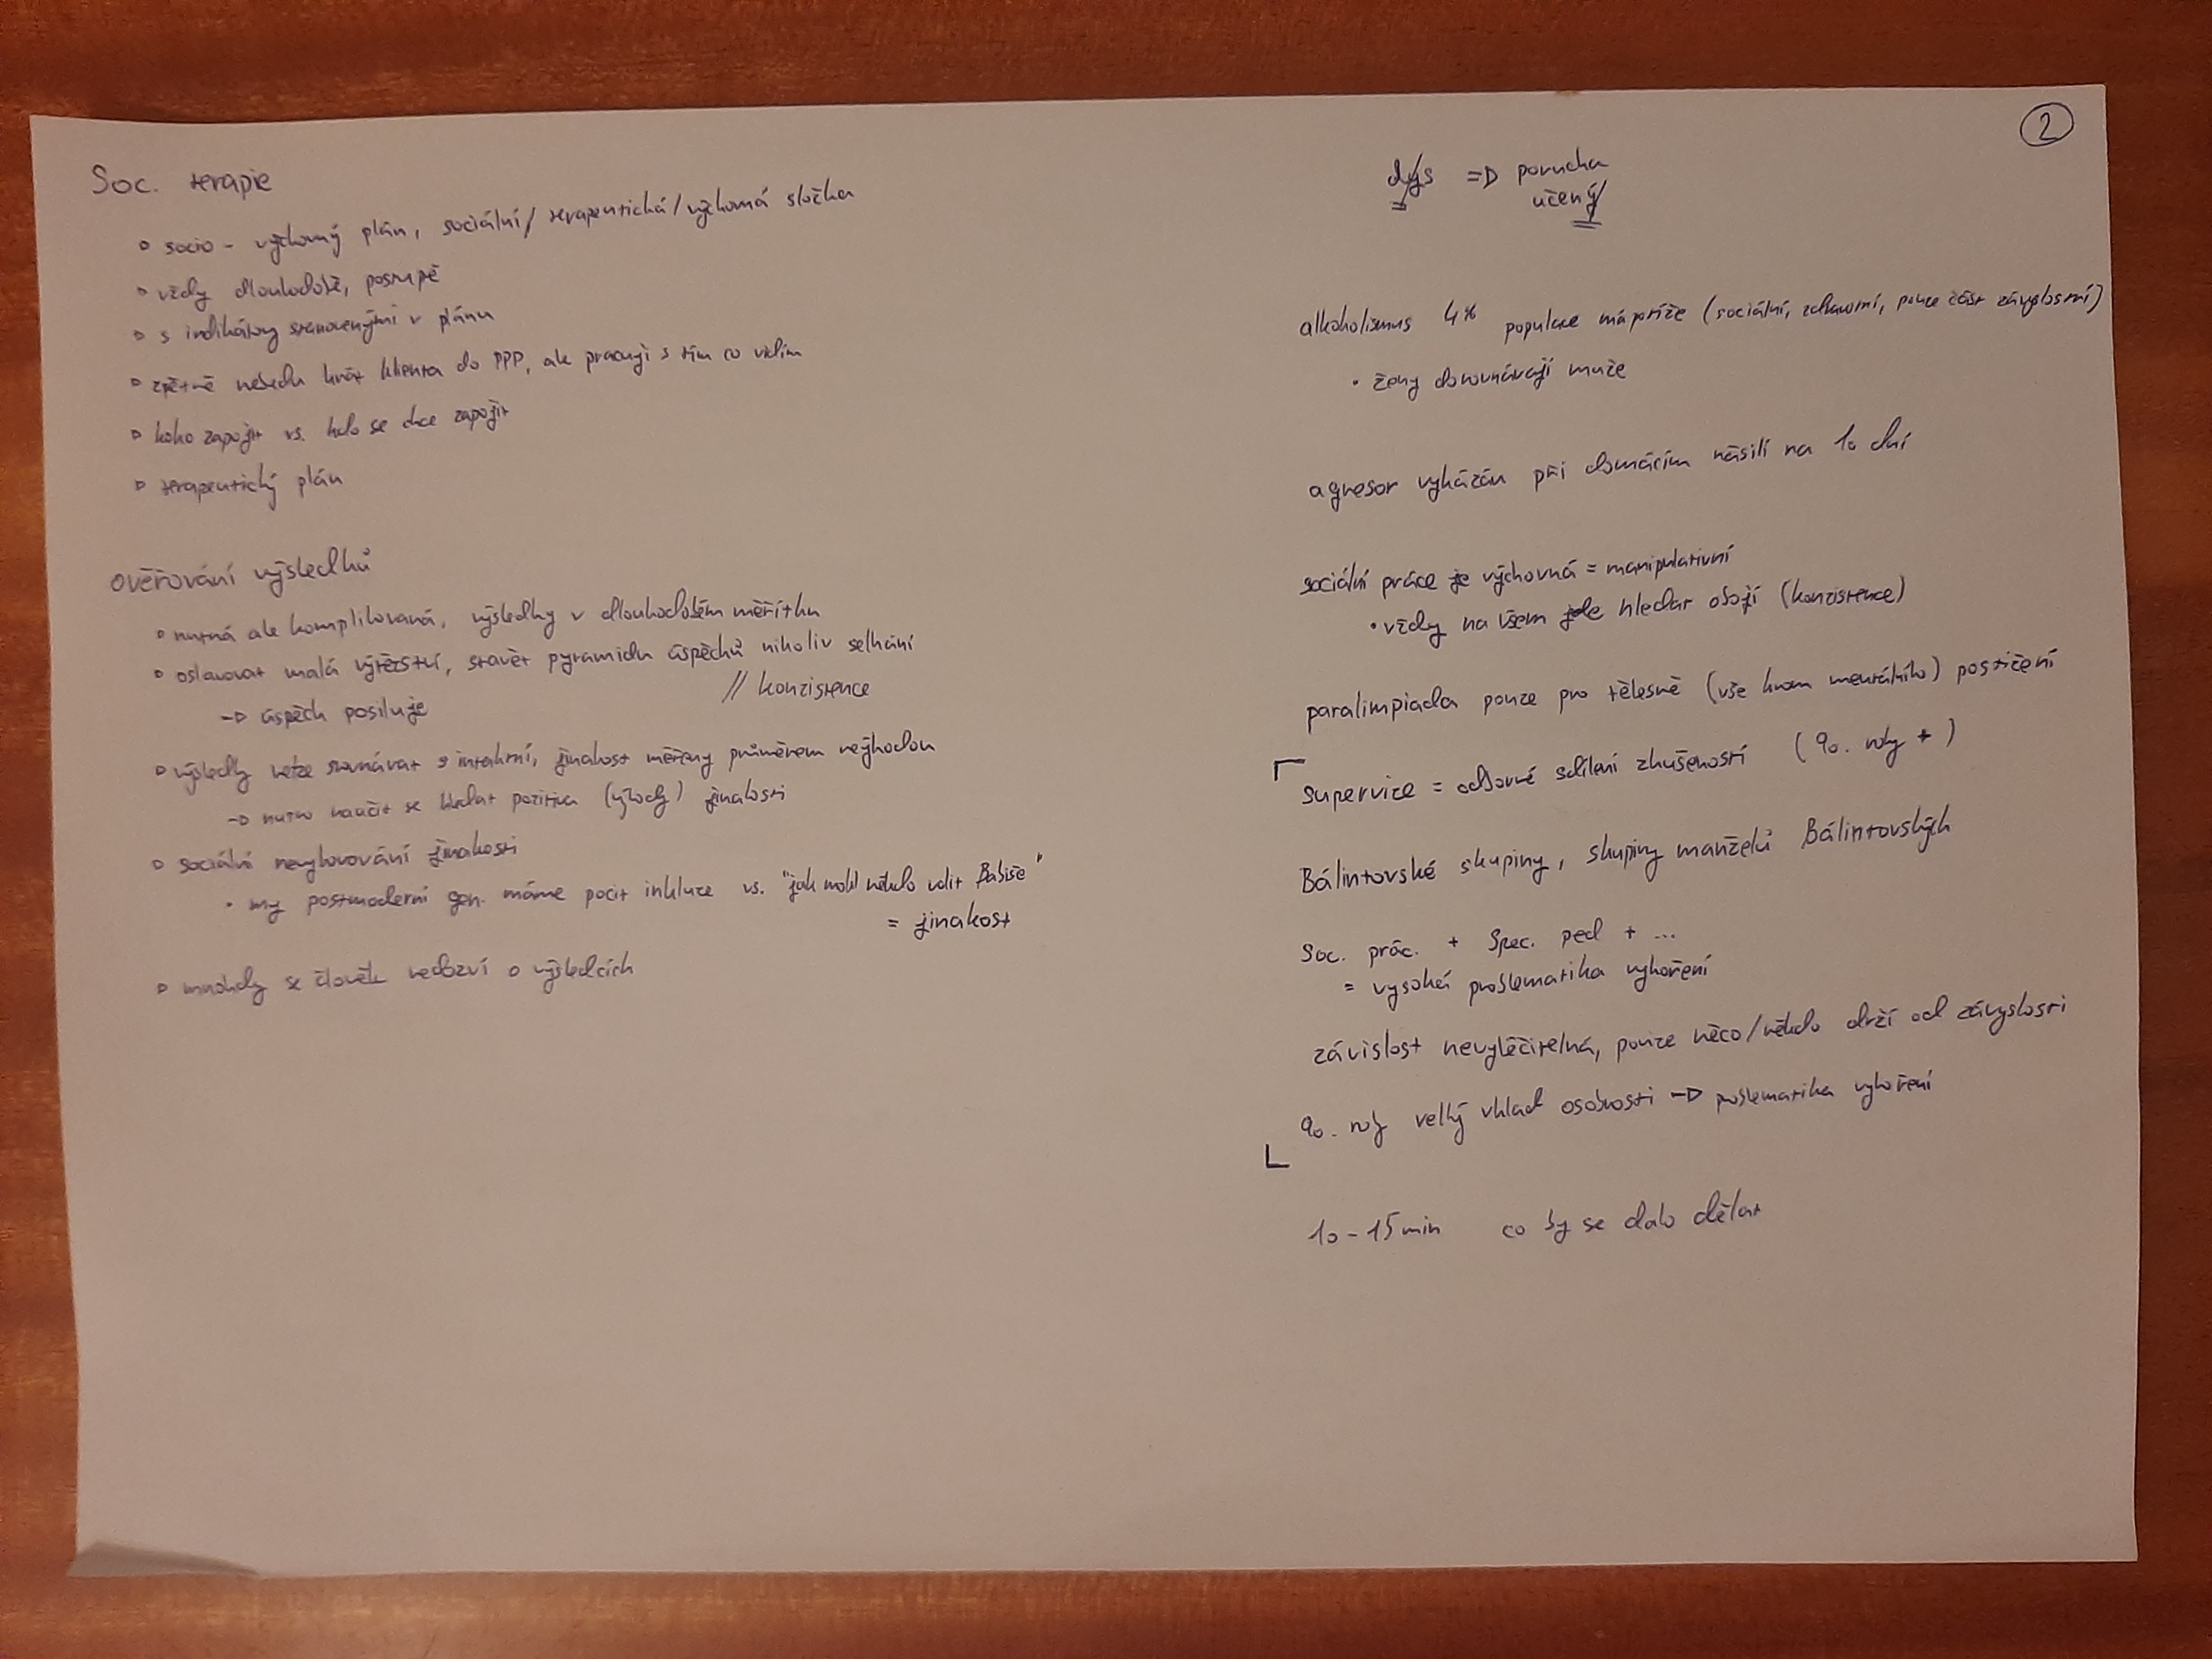 2
Soc. terapie
socio - výchovný plán, sociální/terapeutická/výchovná složka
vždy dlouhodobě, postupě
s indikátory stanovenými v plánu
zpětně nebudu hnát klienta do PPP, ale pracuji s tím co vidím
koho zapojit vs. kdo se chce zapojit
terapeutický plán
ověřování výsledků
nutná ale komplikovaná, výsledky v dlouhodobém měřítku
oslavovat malá výtězství, stavět pyramidu úspěchů nikoliv selhání
→ úspěch posiluje // konzistence
výsledky nelze srovnávat s intaktní, jinakost měřeny průměrem nevýhodou
→ nutno naučit se hledat pozitiva (výhody) jinakosti
sociální nevyhovování jinakosti
• my postmoderní gen. máme pocit inkluze vs. "jak mohl někdo volit Babiše"
= jinakost
mnohdy se člověk nedozví o výsledcích
dys => porucha
učený
alkoholismus 4% populace má potíže (sociální, zdravotní, pouze část závyslostní)
• ženy dorovnávají muže
agresor vykázán při domácím násilí na 10 dní
sociální práce je výchovná = manipulativní
• vždy na všem jde hledat obojí (konzistence)
paralimpiada pouze pro tělesně (vše krom mentálního) postižení
supervize = odborné sdílení zkušeností (90. roky +)
Bálintovské skupiny, skupiny manželů Bálintovských
Soc. prác. + Spec. ped + ...
= vysoká problematika vyhoření
závislost nevyléčitelná, pouze něco/někdo drží od závyslosti
90. roky velký vklad osobnosti → problematika vyhoření
10-15min co by se dalo dělat